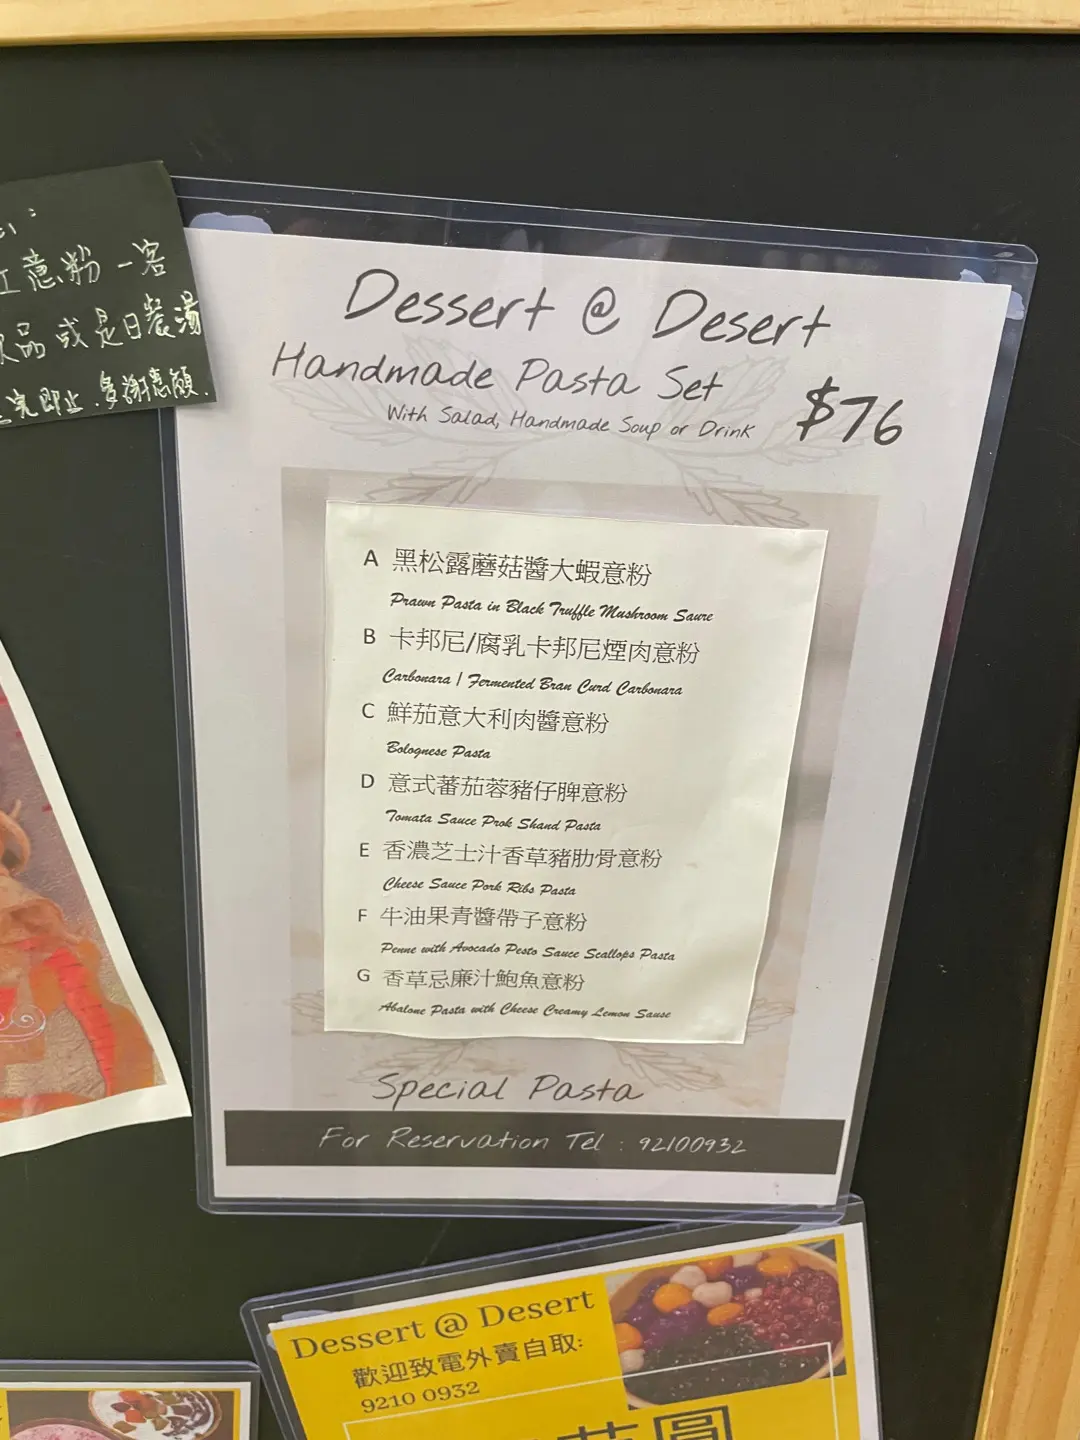 意粉一客
品 或是日餐湯
完即止.多謝惠顧.
Dessert @ Desert
Handmade Pasta Set
With Salad, Handmade Soup or Drink
$76
A 黑松露蘑菇醬大蝦意粉
Prawn Pasta in Black Truffle Mushroom Saure
B 卡邦尼/腐乳卡邦尼煙肉意粉
Carbonara / Fermented Bran Curd Carbonara
C 鮮茄意大利肉醬意粉
Bolognese Pasta
D 意式蕃茄蓉豬仔脾意粉
Tomata Sauce Prok Shand Pasta
E 香濃芝士汁香草豬肋骨意粉
Cheese Sauce Pork Ribs Pasta
F 牛油果青醬帶子意粉
Penne with Avocado Pesto Sauce Scallops Pasta
G 香草忌廉汁鮑魚意粉
Abalone Pasta with Cheese Creamy Lemon Sause
Special Pasta
For Reservation Tel : 92100932
Dessert @ Desert
歡迎致電外賣自取:
9210 0932
圓